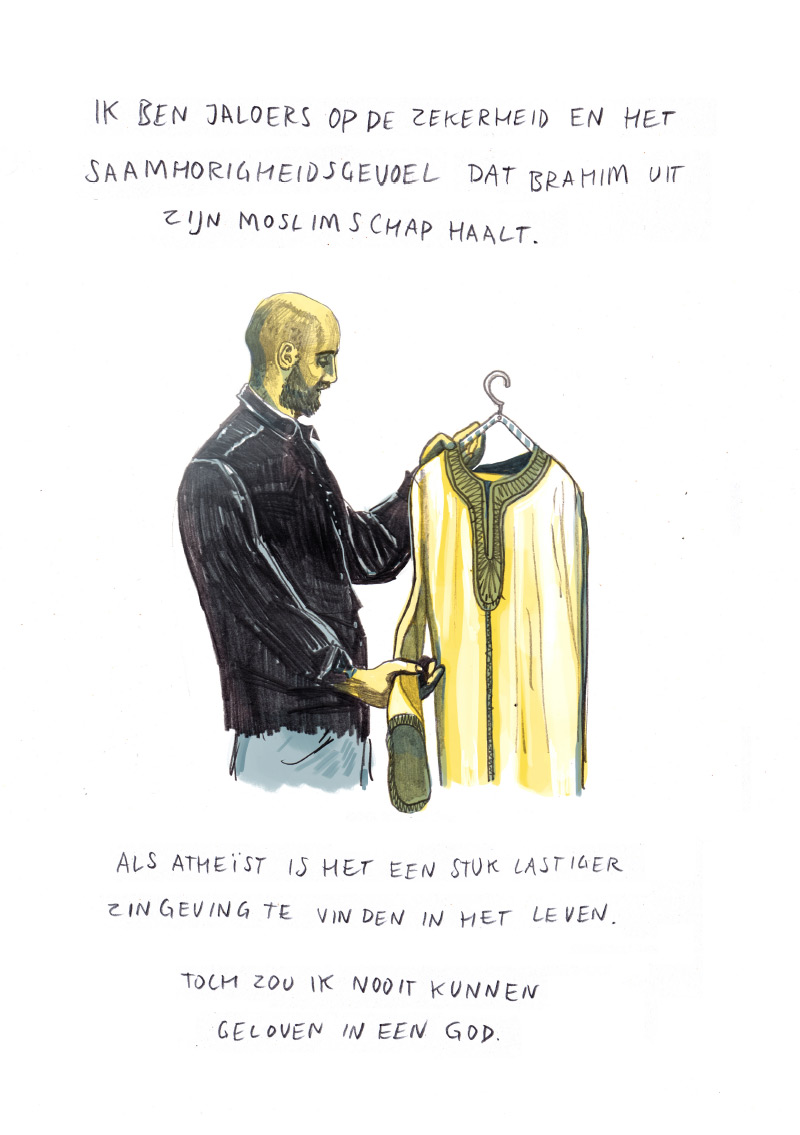 IK BEN JALOERS OP DE ZEKERHEID EN HET
SAAMHORIGHEIDSGEVOEL DAT BRAHIM UIT
ZIJN MOSLIMSCHAP HAALT.
ALS ATHEÏST IS HET EEN STUK LASTIGER
ZINGEVING TE VINDEN IN HET LEVEN.
TOCH ZOU IK NOOIT KUNNEN
GELOVEN IN EEN GOD.